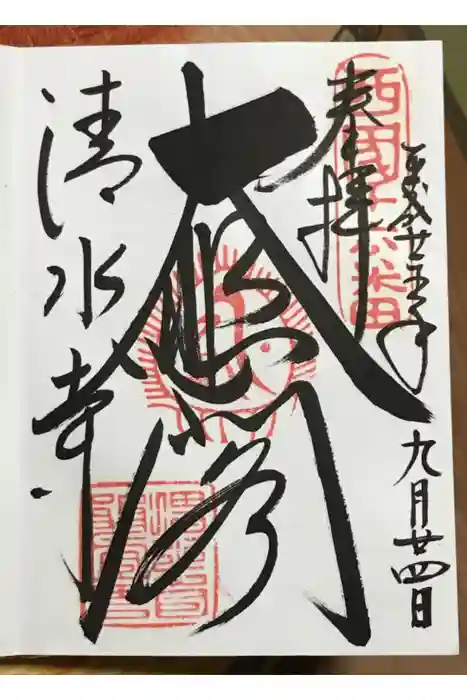 平成廿五年九月廿四日
奉拝
西國十六番
大悲閣
清水寺